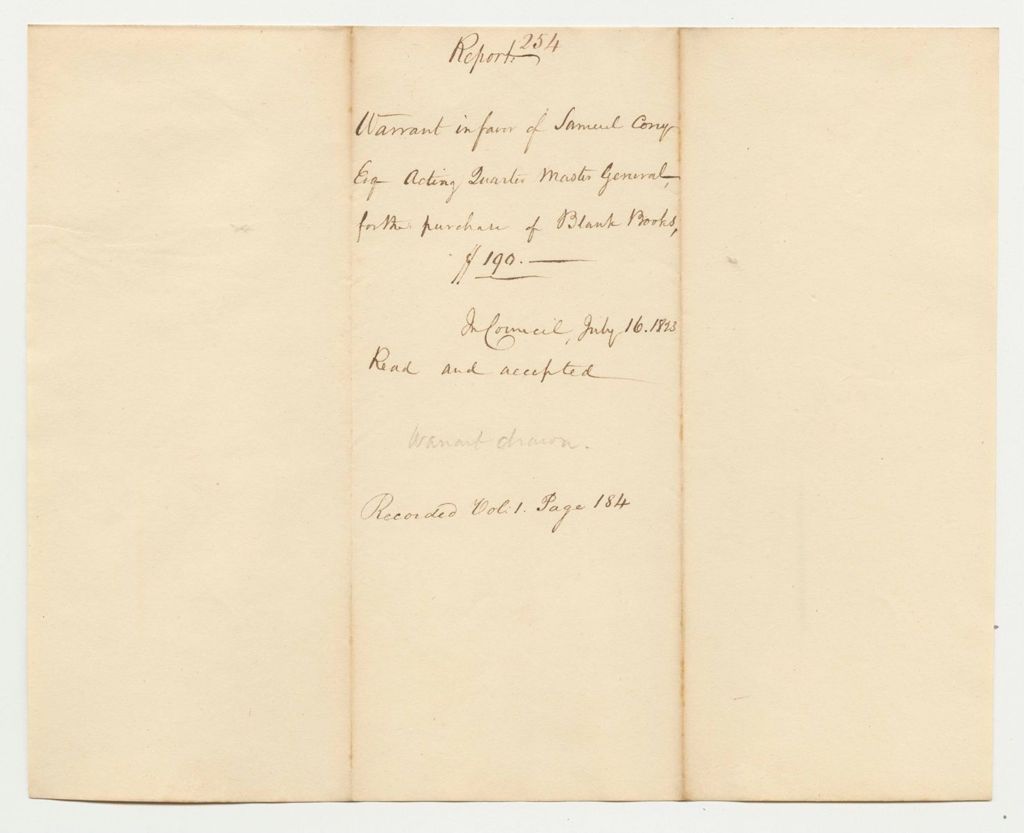 Report 254
Warrant in favor of Samuel Cony
Esq Acting Quarter Master General,
for the purchase of Blank Books,
$190.—
In Council, July 16. 1823
Read and accepted
Warrant drawn.
Recorded Vol: 1. Page 184